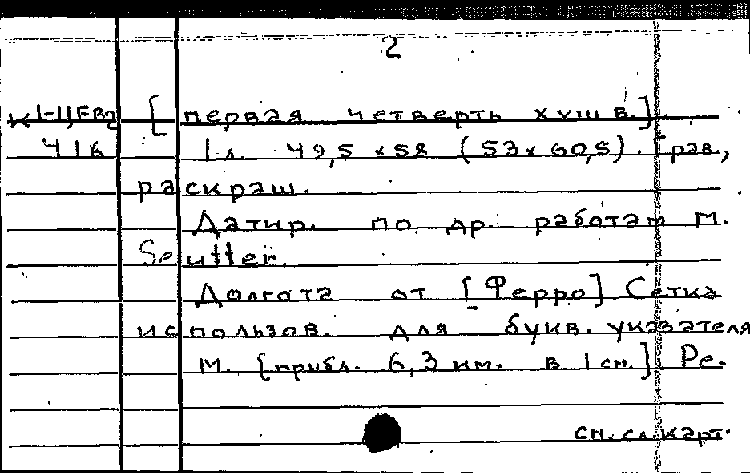 2
К 1-Ц,ЕВ2 [первая четверть XVIII в.]
416 1 л. 49,5 x 58 (53 x 60,5). Грав,
раскраш.
Датир. по др. работам M.
Seutter.
Долгота от [Ферро] Сетка
использов. для букв. указателя
М. [прибл. 6,3 км. в 1 см.] Ре.
см. сл. карт.